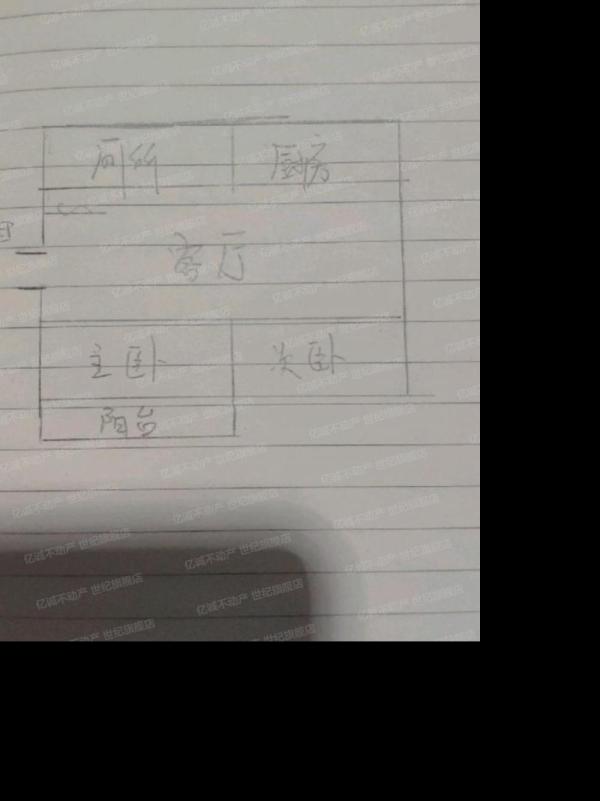 厕所 厨房
客厅
主卧 次卧
阳台
亿诚不动产 世纪旗舰店